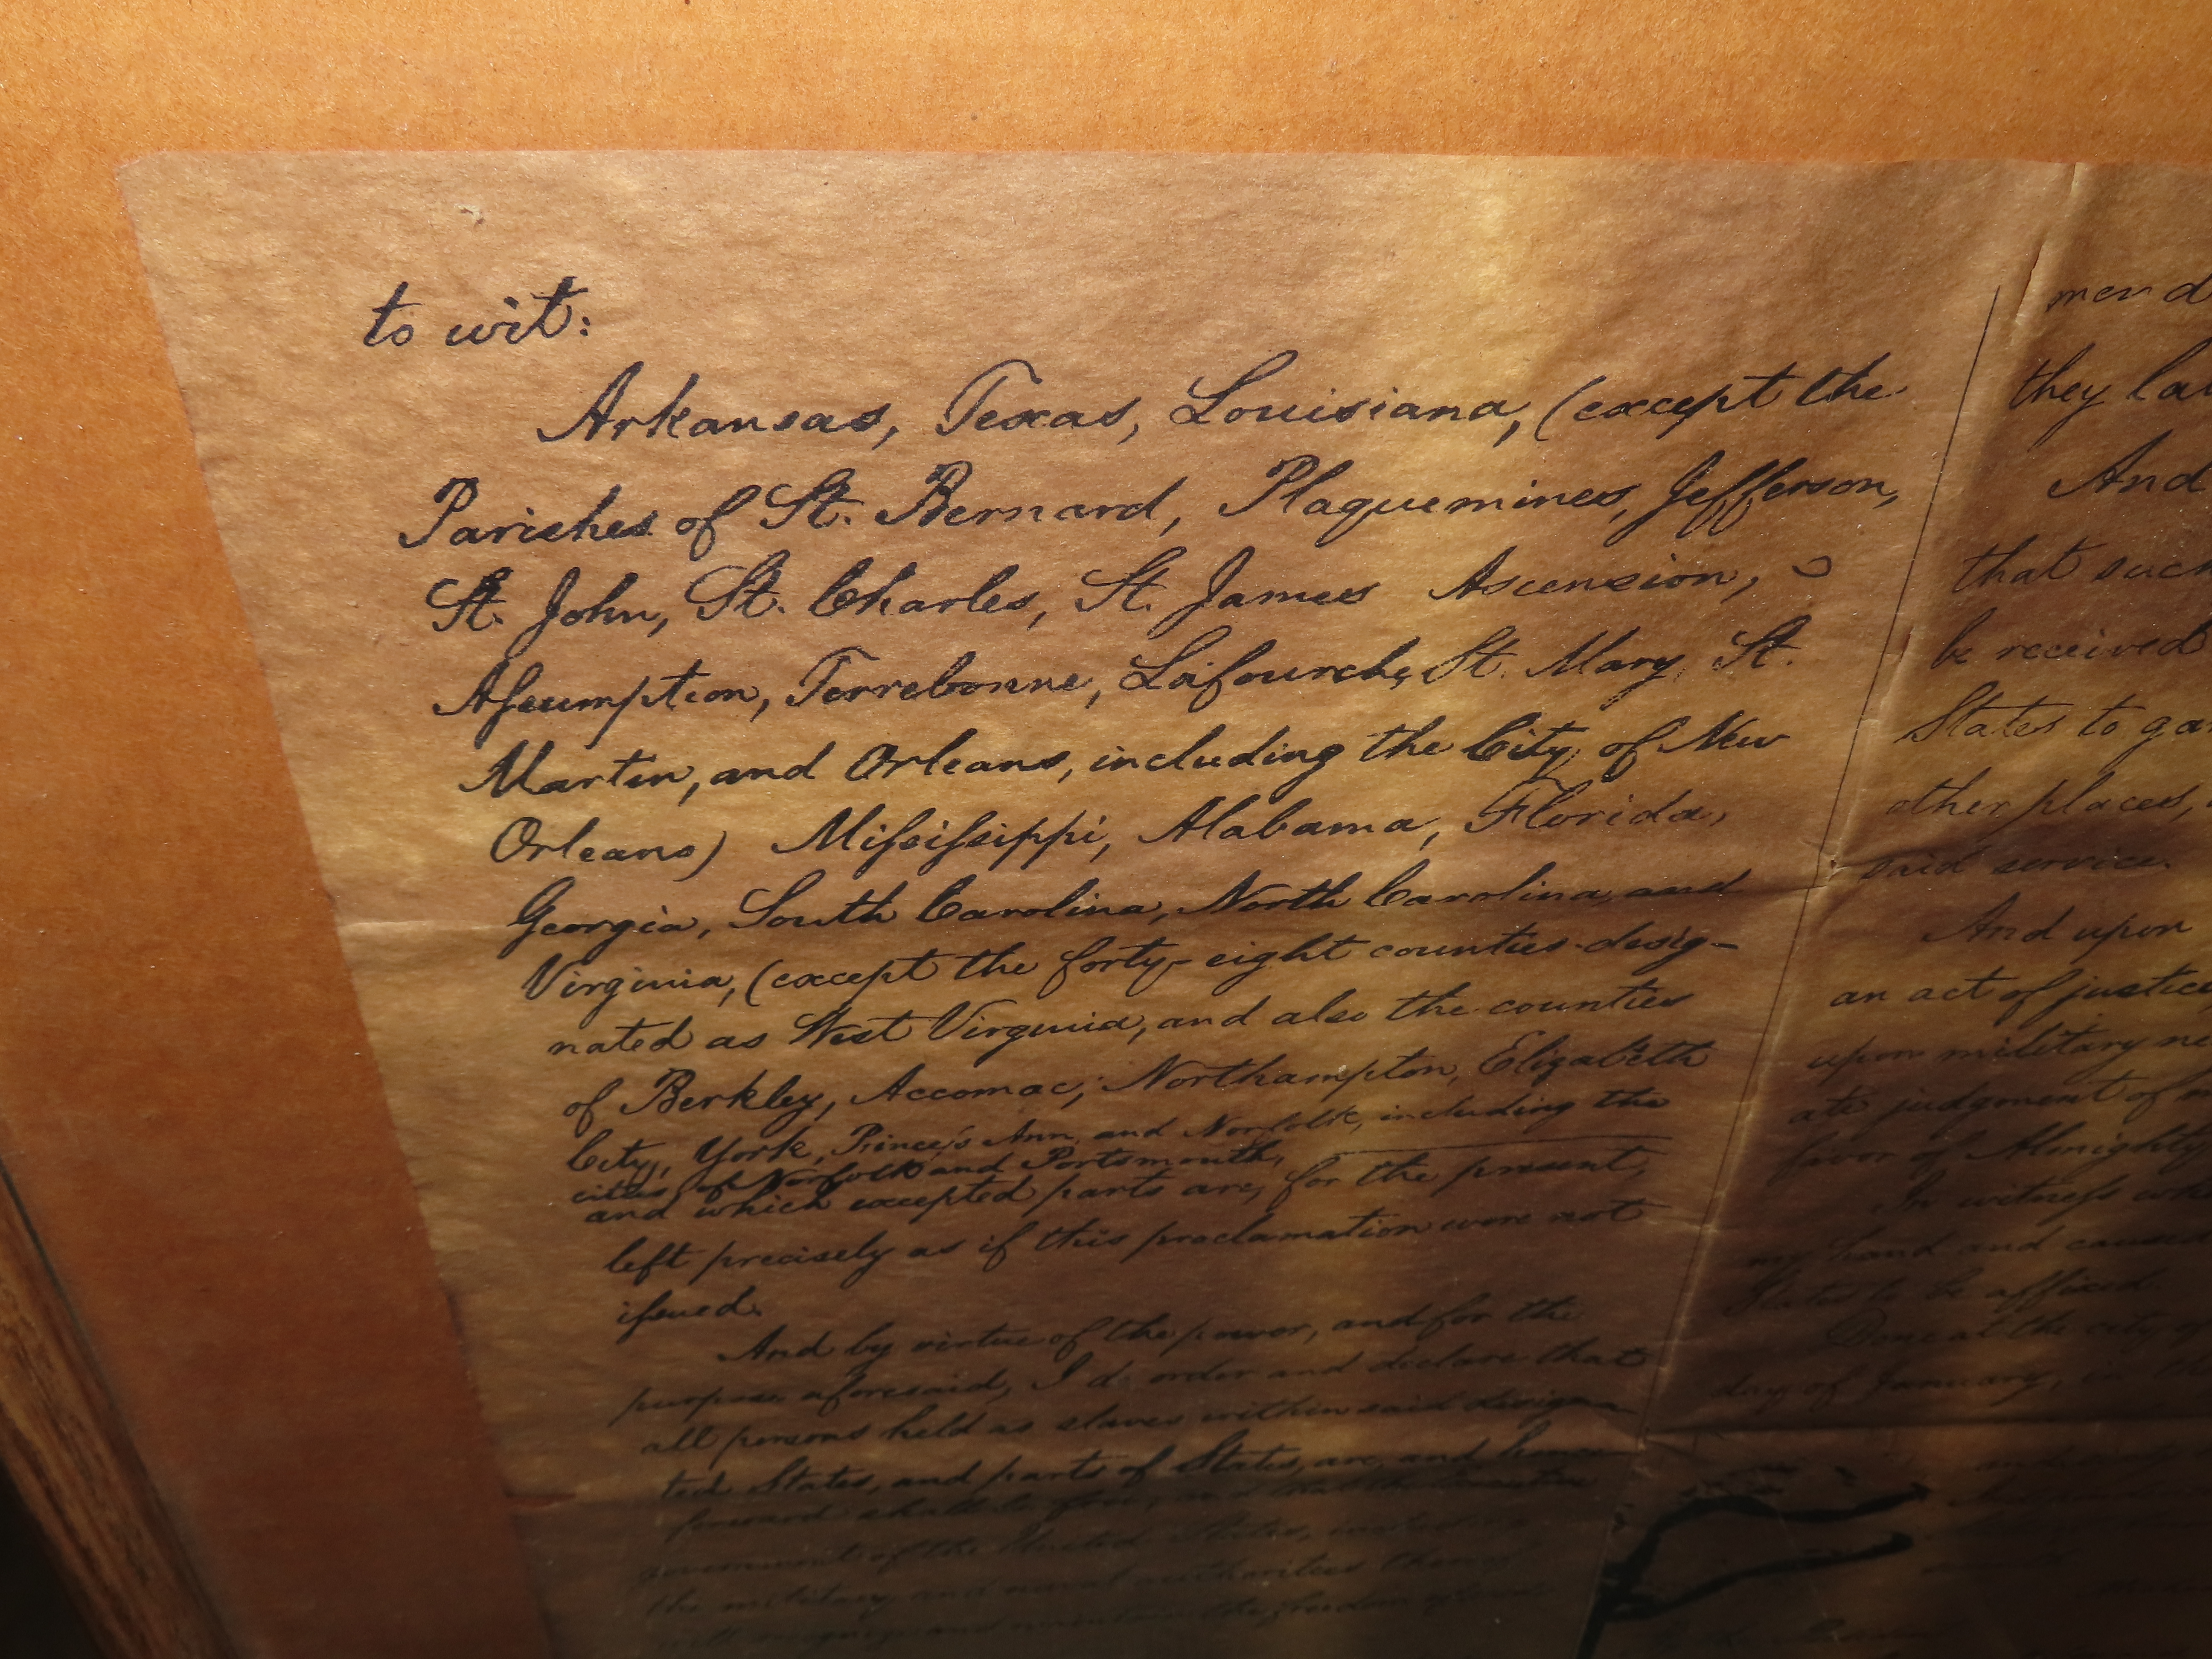 to wit:
Arkansas, Texas, Louisiana, (except the
Parishes of St. Bernard, Plaquemines, Jefferson,
St. John, St. Charles, St. James Ascension,
Aſsumption, Terrebonne, Lafourche, St. Mary, St.
Martin, and Orleans, including the City of New
Orleans) Miſsiſsippi, Alabama, Florida,
Georgia, South Carolina, North Carolina and
Virginia, (except the forty-eight counties desig-
nated as West Virginia, and also the counties
of Berkley, Accomac, Northampton, Elizabeth
City, York, Prince's Ann, and Norfolk, including the
cities of Norfolk and Portsmouth,
and which excepted parts are, for the present,
left precisely as if this proclamation were not
iſsued.
And by virtue of the power, and for the
purpose aforesaid, I do order and declare that
all persons held as slaves within said designa-
ted States, and parts of States, are, and hence
forward shall be free; and that the Executive
government of the United States, including
the military and naval authorities thereof
they
And
that such
be received
States to
other places,
said service.
And upon
an act of justice
upon military
ate judgment of
favor of Almighty
In witneſs
my hand and caused
States to be affixed.
Done at the city of
day of January, in the